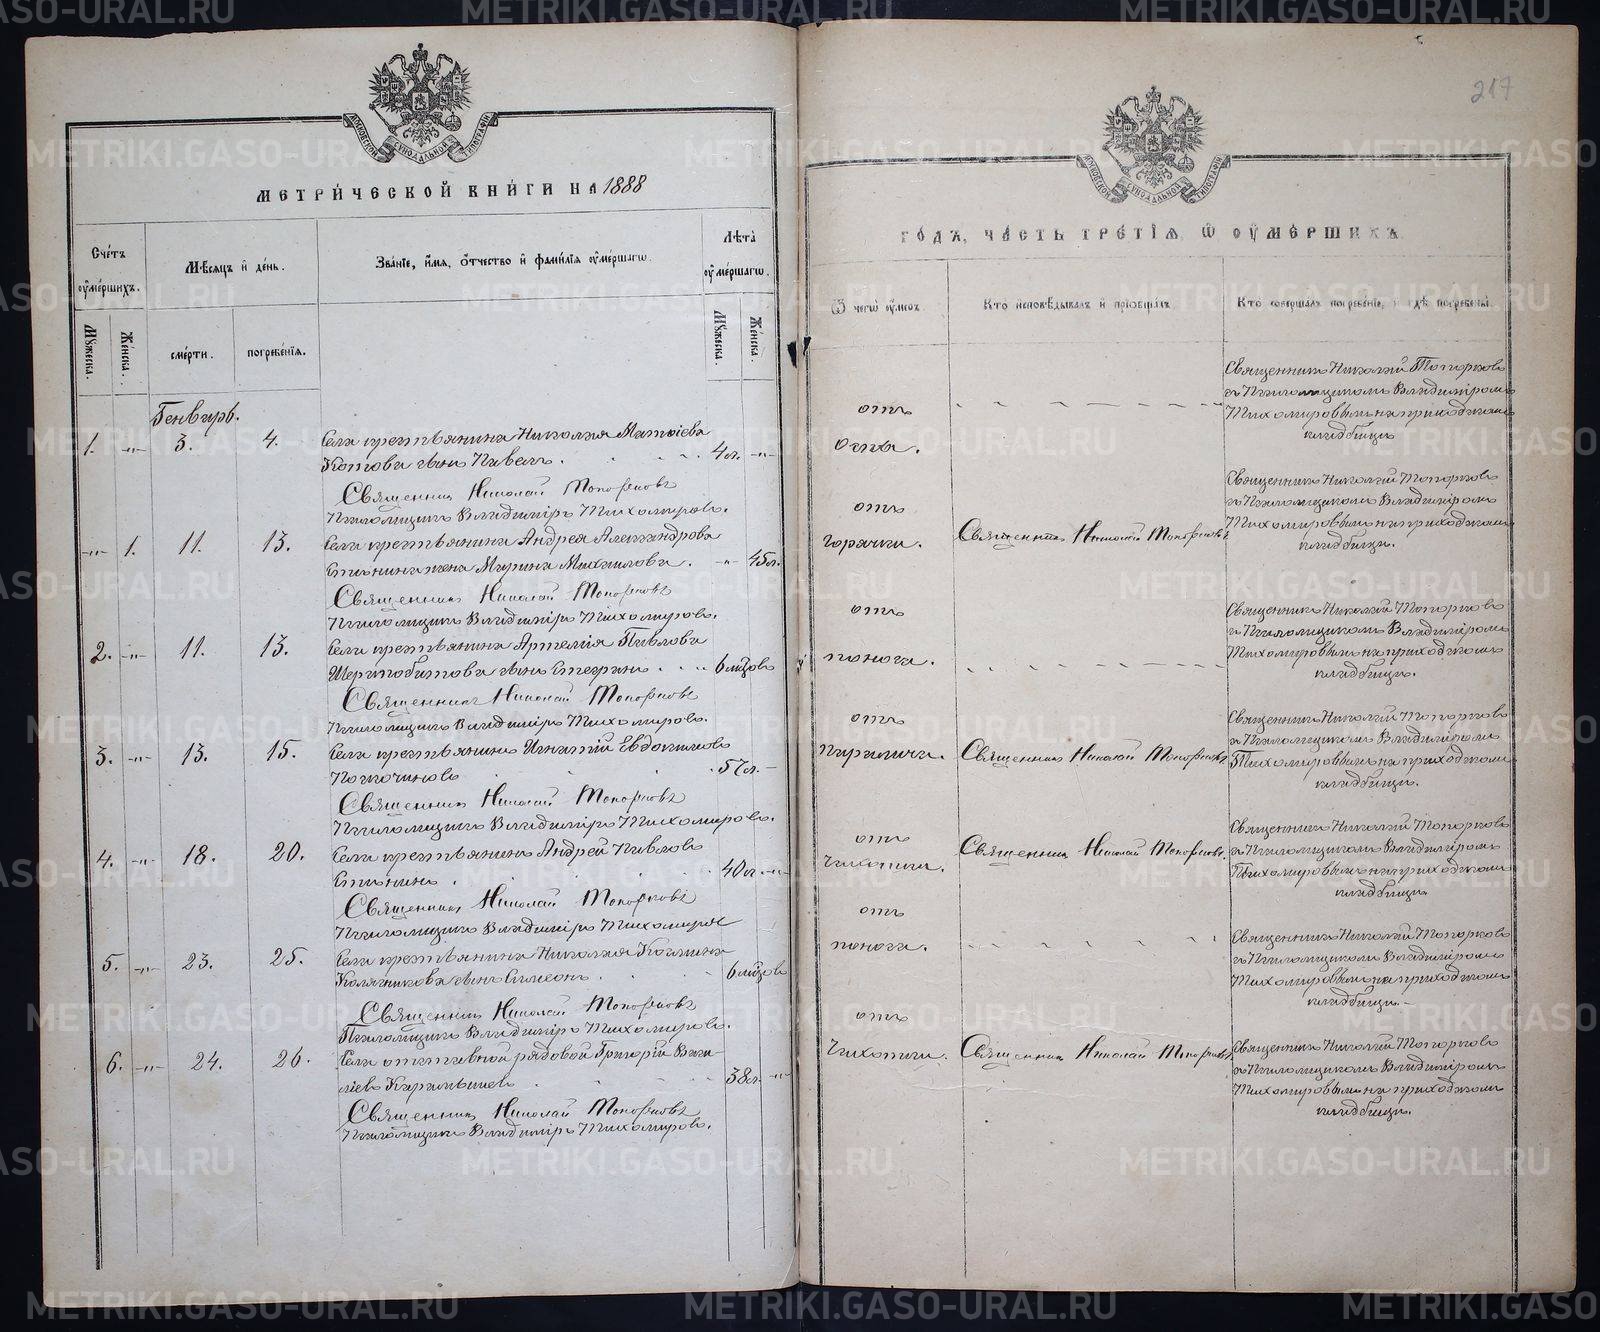 217
МОСКОВСКОЙ СѴНОДАЛЬНОЙ ТИПОГРАФІИ
МЕТРИ́ЧЕСКОЙ КНИ́ГИ НА 1888
Сче́тъ оу҆ме́ршихъ.
Мѣ́сяцъ и҆ де́нь.
Зва́нїе, и҆́мя, ѻ҆́тчество и҆ фами́лїя оу҆ме́ршагѡ.
Лѣ́та оу҆ме́ршагѡ.
Мꙋ́жеска.
Же́нска.
сме́рти.
погребе́нїя.
Мꙋ́жеска.
Же́нска.
Генварь.
1. -"- 3. 4. Села крестьянина Николая Матѳіева
Котова сынъ Павелъ. 4 л. -"-
Священникъ Николай Топорковъ
Псаломщикъ Владиміръ Тихомировъ.
-"- 1. 11. 13. Села крестьянина Андрея Александрова
жена Марина Михаилова. -"- 45 л.
Священникъ Николай Топорковъ
Псаломщикъ Владиміръ Тихомировъ.
2. -"- 11. 13. Села крестьянина Артемія Павлова
Шерстобитова сынъ Стефанъ. 6 мѣсяцовъ
Священникъ Николай Топорковъ
Псаломщикъ Владиміръ Тихомировъ.
3. -"- 13. 15. Села крестьянинъ Игнатій Евдокимовъ
57 л. -
Священникъ Николай Топорковъ
Псаломщикъ Владиміръ Тихомировъ.
4. -"- 18. 20. Села крестьянинъ Андрей Павловъ
40 л. -"-
Священникъ Николай Топорковъ
Псаломщикъ Владиміръ Тихомировъ
5. -"- 23. 25. Села крестьянина Николая Козмина
Колясникова сынъ Симеонъ. 6 мѣсяцовъ
Священникъ Николай Топорковъ
Псаломщикъ Владиміръ Тихомировъ.
6. -"- 24. 26. Села отставной рядовой Григорій Васи-
ліевъ Карамышевъ 38 л. -"-
Священникъ Николай Топорковъ
Псаломщикъ Владиміръ Тихомировъ.
МОСКОВСКОЙ СѴНОДАЛЬНОЙ ТИПОГРАФІИ
ГО́ДЪ, ЧА́СТЬ ТРЕ́ТІЯ, Ѡ҆ ОУ҆МЕ́РШИХЪ
Ѿ чегѡ̀ оу҆́меръ.
Кто̀ и҆сповѣ́дывалъ и҆ прїѡбща́лъ.
Кто̀ соверша́лъ погребе́нїе, и҆ гдѣ̀ погребены̀.
отъ
огика.
Священникъ Николай Топорковъ
съ Псаломщикомъ Владиміромъ
Тихомировымъ на приходскомъ
кладбищѣ
отъ
горячки. Священникъ Николай Топорковъ
Священникъ Николай Топорковъ
съ Псаломщикомъ Владиміромъ
Тихомировымъ на приходскомъ
кладбищѣ.
отъ
поноса.
Священникъ Николай Топорковъ
съ Псаломщикомъ Владиміромъ
Тихомировымъ на приходскомъ
кладбищѣ.
отъ
паралича. Священникъ Николай Топорковъ
Священникъ Николай Топорковъ
съ Псаломщикомъ Владиміромъ
Тихомировымъ на приходскомъ
кладбищѣ.
отъ
чахотки. Священникъ Николай Топорковъ
Священникъ Николай Топорковъ
съ Псаломщикомъ Владиміромъ
Тихомировымъ на приходскомъ
кладбищѣ.
отъ
поноса.
Священникъ Николай Топорковъ
съ Псаломщикомъ Владиміромъ
Тихомировымъ на приходскомъ
кладбищѣ.
отъ
чахотки. Священникъ Николай Топорковъ
Священникъ Николай Топорковъ
съ Псаломщикомъ Владиміромъ
Тихомировымъ на приходскомъ
кладбищѣ.
METRIKI.GASO-URAL.RU